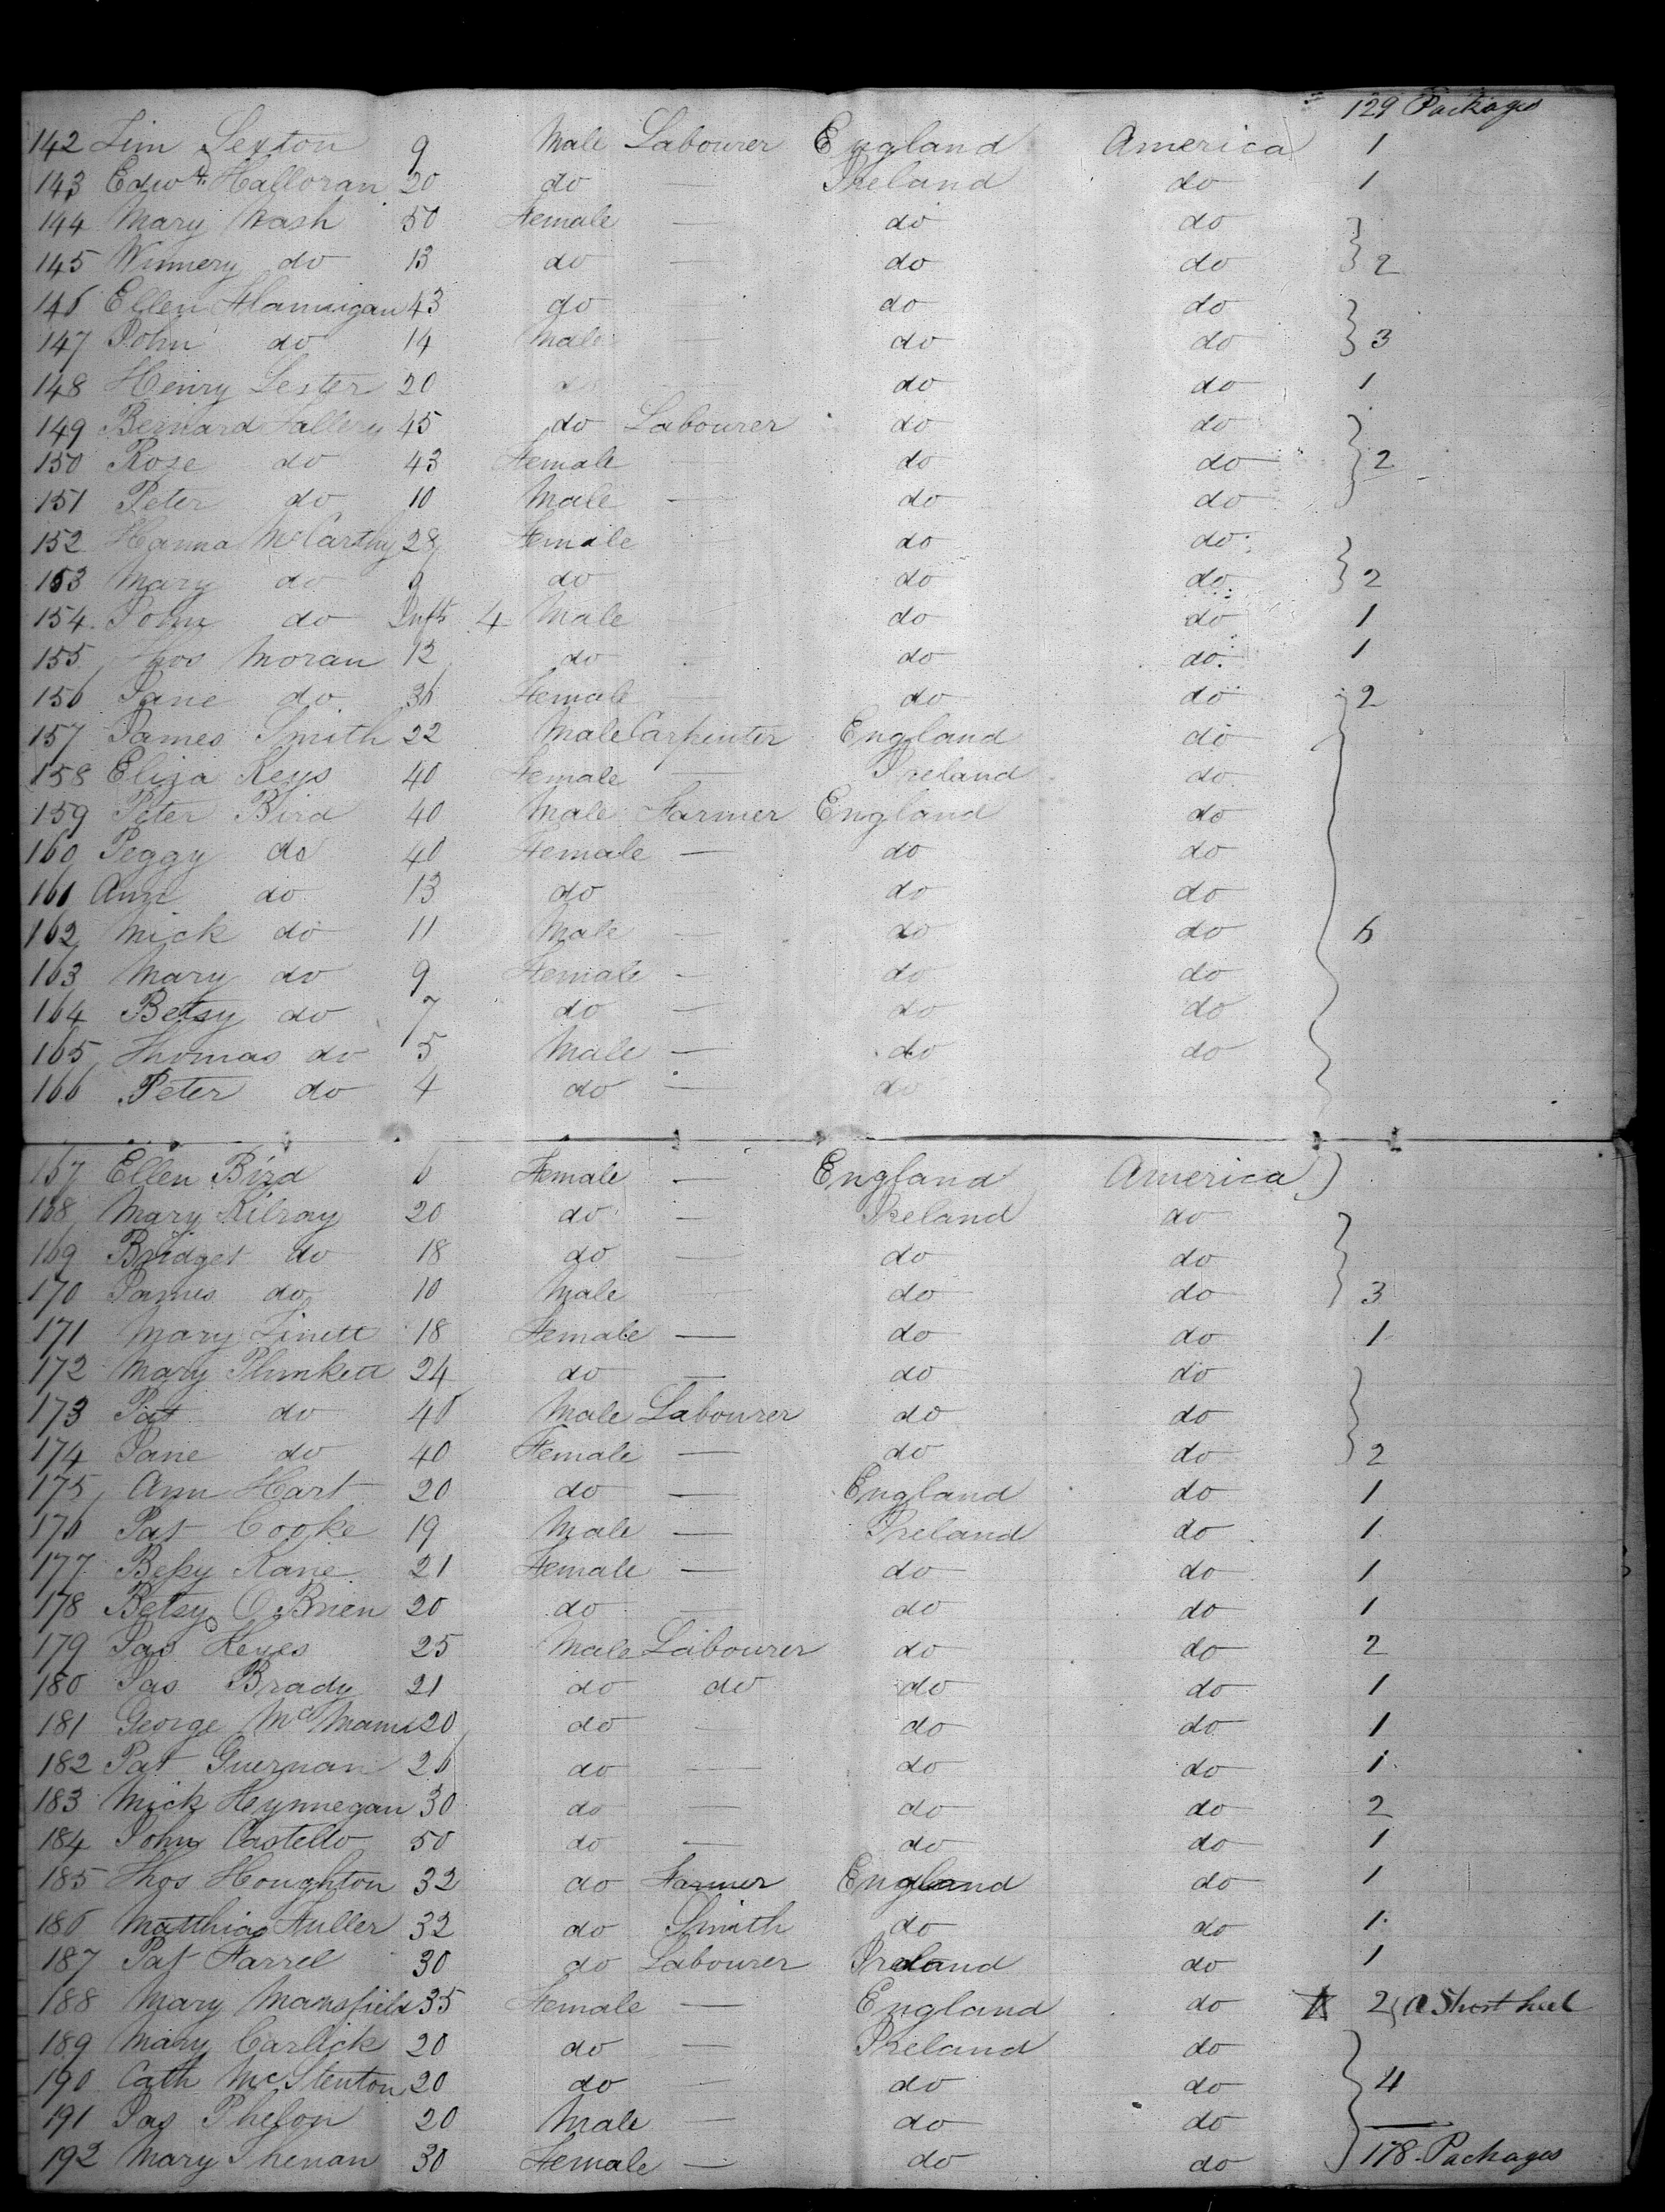 129 Packages
142 Tim Sexton 9 Male Labourer England America 1
143 Edwd. Halloran 20 do — Ireland do 1
144 Mary Nash 50 Female — do do
145 Winnery do 13 do — do do 2
146 Ellen Hannigan 43 do do do
147 John do 14 Male — do do 3
148 Henry Lester 20 do do 1
149 Bernard Fallery 45 do Labourer do do
150 Rose do 43 Female do do 2
151 Peter do 10 Male — do do
152 Hanna McCarthy 28 Female do do
153 Mary do 9 do do do 2
154 John do Inft 4 Male do do 1
155 Thos Moran 12 do do do 1
156 Jane do 36 Female — do do 2
157 James Smith 22 Male Carpenter England do
158 Eliza Keys 40 Female — Ireland do
159 Peter Bird 40 Male Farmer England do
160 Peggy do 40 Female — do do
161 Ann do 13 do do do
162 Mick do 11 Male — do do 6
163 Mary do 9 Female — do do
164 Betsy do 7 do — do do
165 Thomas do 5 Male — do do
166 Peter do 4 do — do
167 Ellen Bird 6 Female — England America
168 Mary Kilroy 20 do — Ireland do
169 Bridget do 18 do — do do
170 James do 10 Male do do 3
171 Mary Linett 18 Female — do do 1
172 Mary Plunkett 24 do — do do
173 Pat do 40 Male Labourer do do
174 Jane do 40 Female — do do 2
175 Ann Hart 20 do — England do 1
176 Pat Cooke 19 Male — Ireland do 1
177 Bessy Kane 21 Female — do do 1
178 Betsy O'Brien 20 do — do do 1
179 Jas Keyes 25 Male Labourer do do 2
180 Jas Brady 21 do do do do 1
181 George 20 do — do do 1
182 Pat Guernan 26 do — do do 1
183 Mick Hynnegan 30 do — do do 2
184 John Costello 50 do — do do 1
185 Thos Houghton 32 do Farmer England do 1
186 Matthias Fuller 32 do Smith do do 1
187 Pat Farrel 30 do Labourer Ireland do 1
188 Mary Mansfield 35 Female — England do 2
189 Mary Carlick 20 do — Ireland do
190 Cath McStenton 20 do — do do 4
191 Jas Phelon 20 Male — do do
192 Mary 30 Female — do do 178 Packages